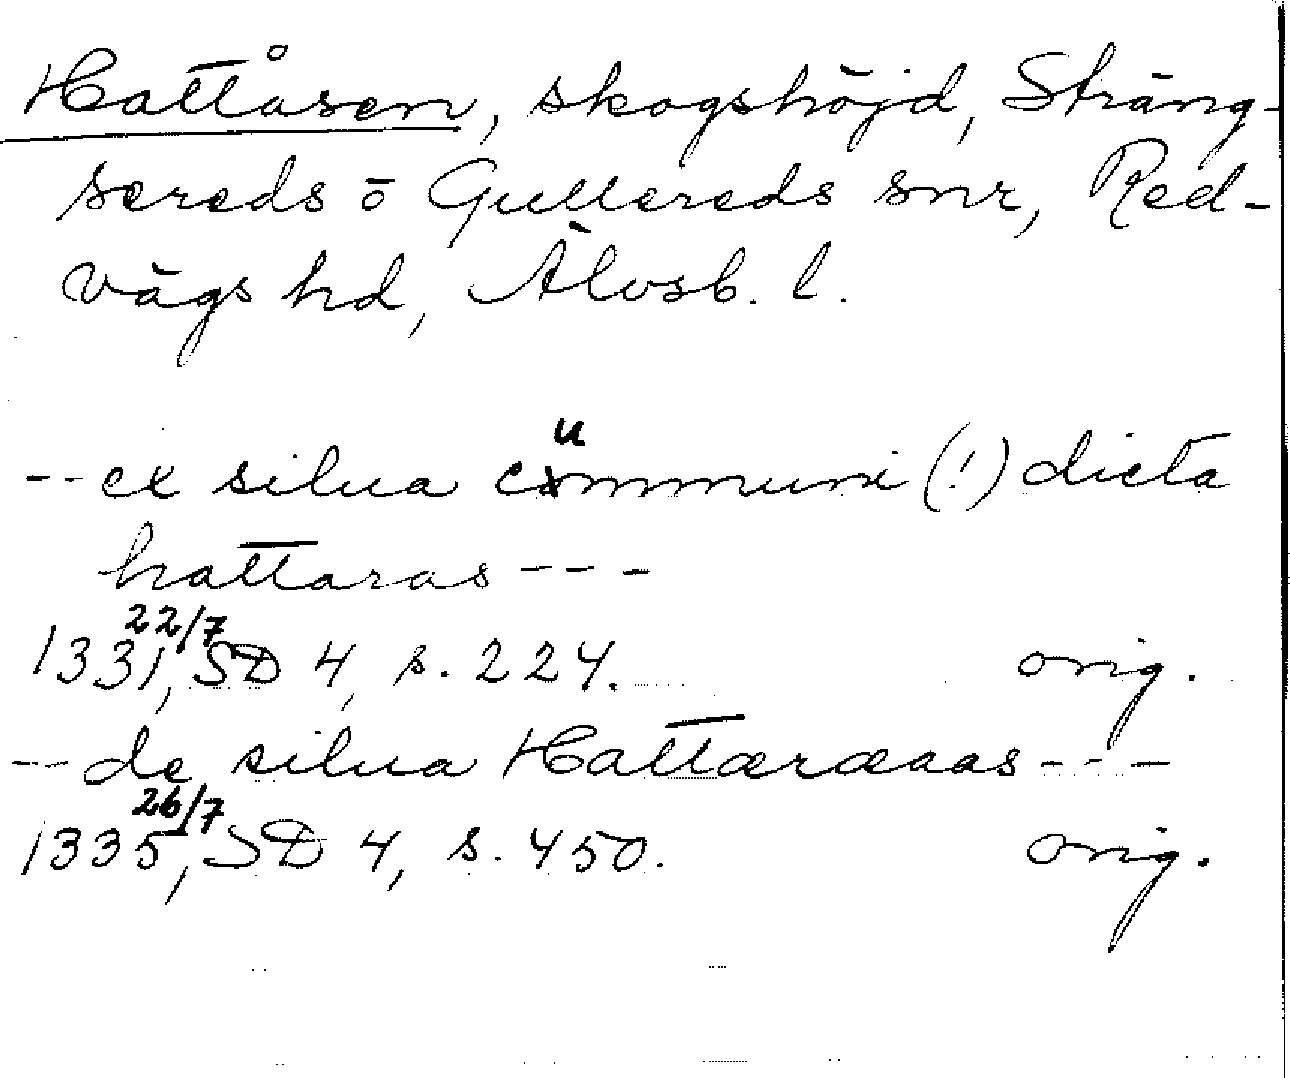 Hattåsen, skogshöjd, Sträng-
sereds o Gullereds snr, Red-
vägs hd, Älvsb. l.
-- ex silua cummuni (!) dicta
hattaras ---
1331 22/7, SD 4, s. 224. orig.
-- de silua Hattæræaas ---
1335 26/7, SD 4, s. 450. orig.